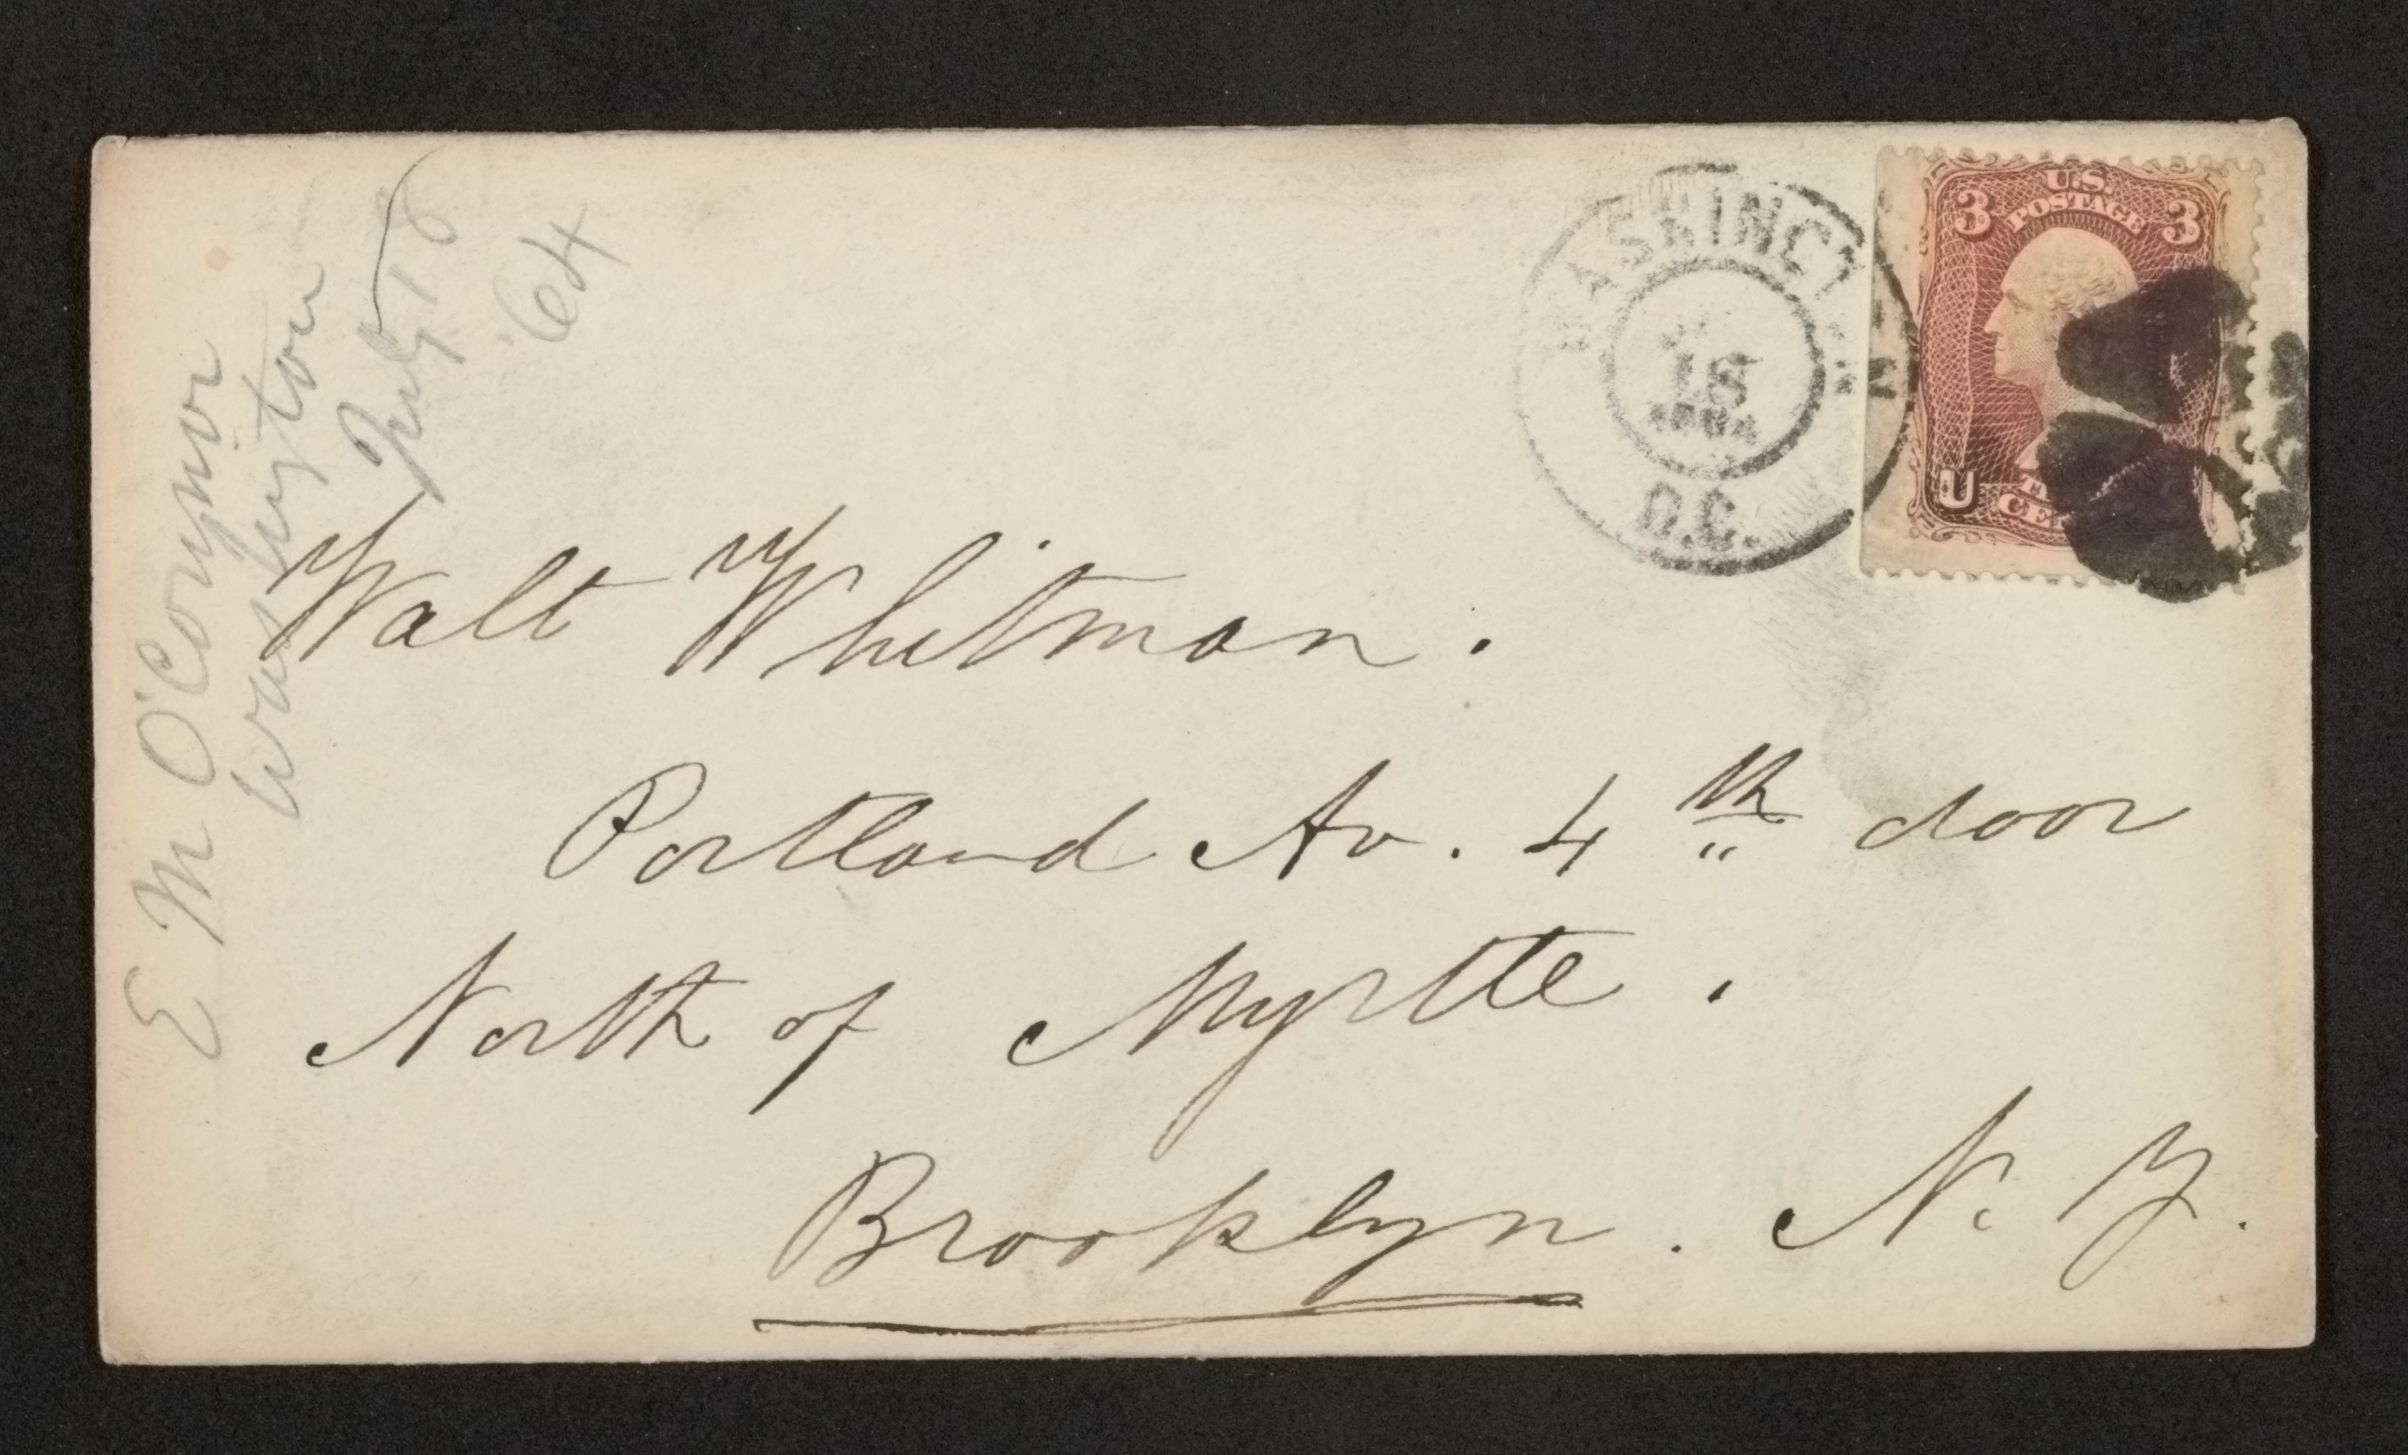 E M O'Connor
Washington
July 18
'64
WASHINGTON
18
1864
D.C.
3 U.S. POSTAGE 3
U
Walt Whitman.
Portland Av. 4th door
North of Myrtle.
Brooklyn. N. Y.